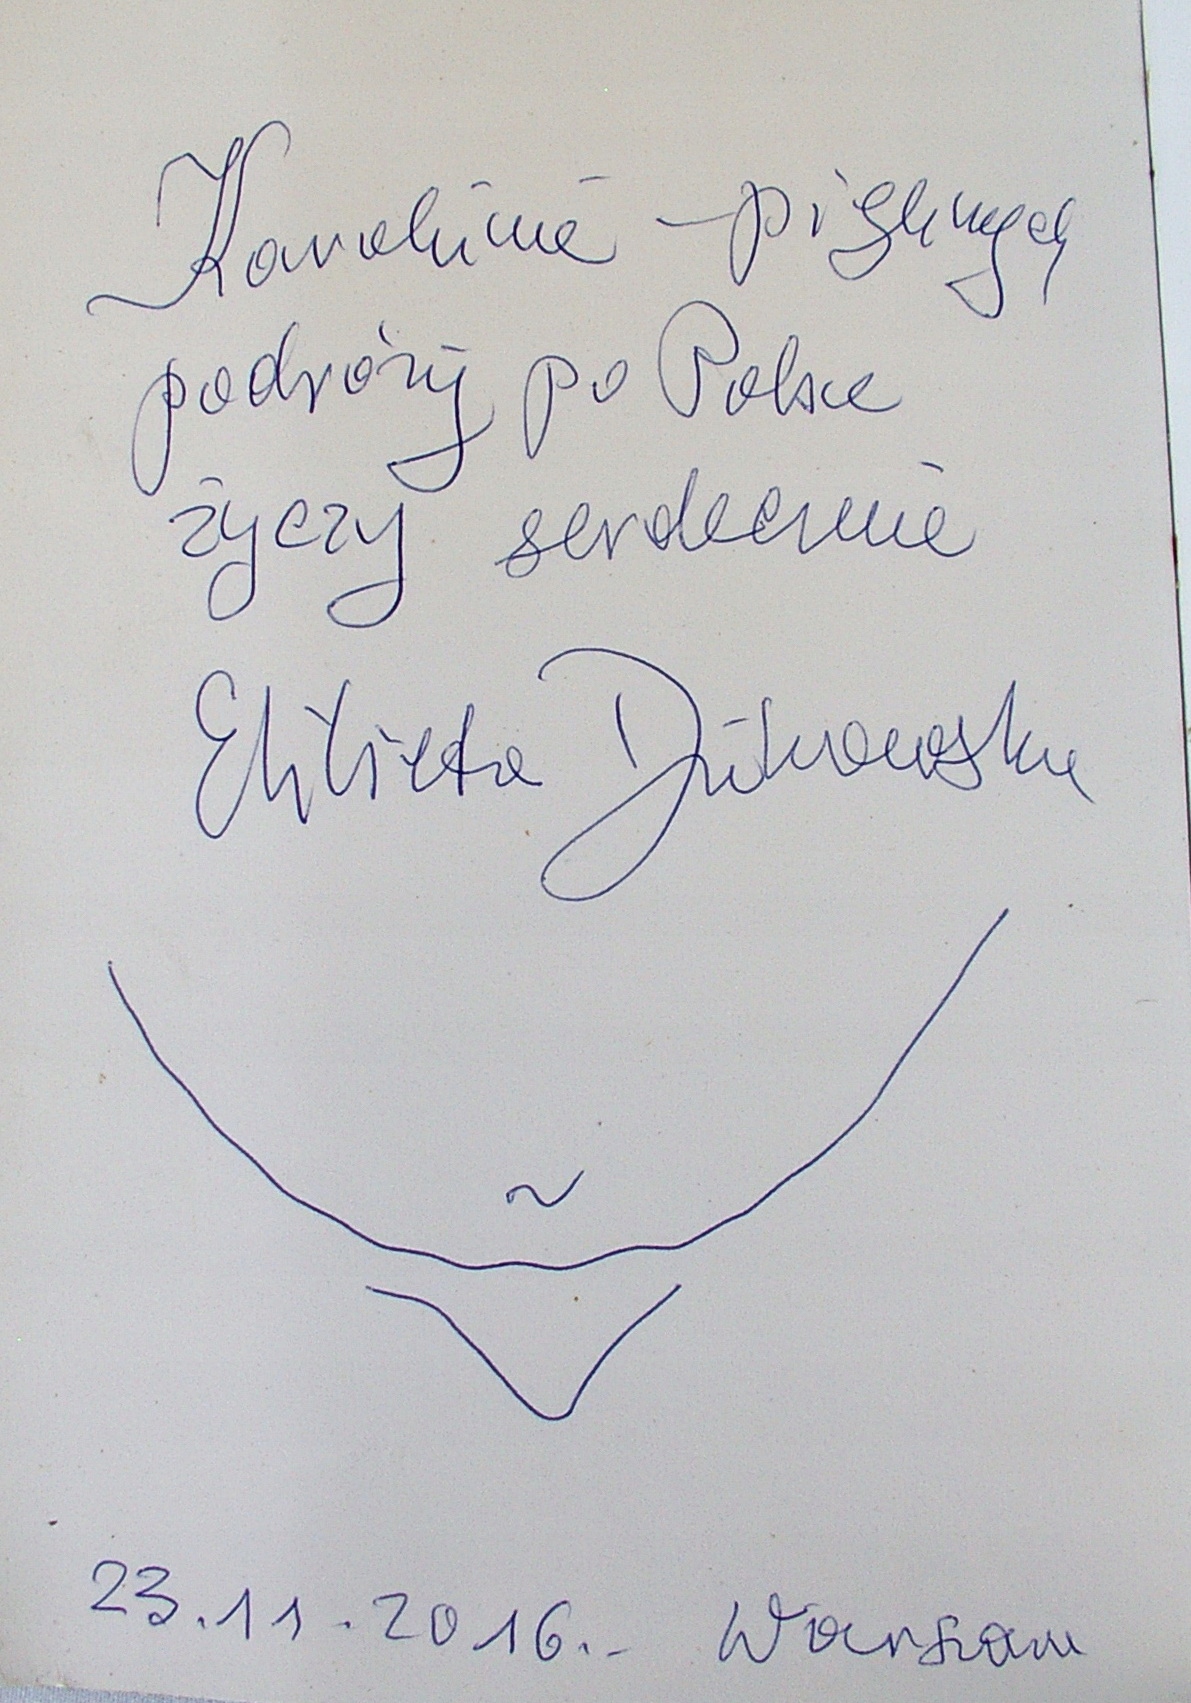 Karolinie – pięknych
podróży po Polsce
życzy serdecznie
Elżbieta Dzikowska
23.11.2016. Warszawa